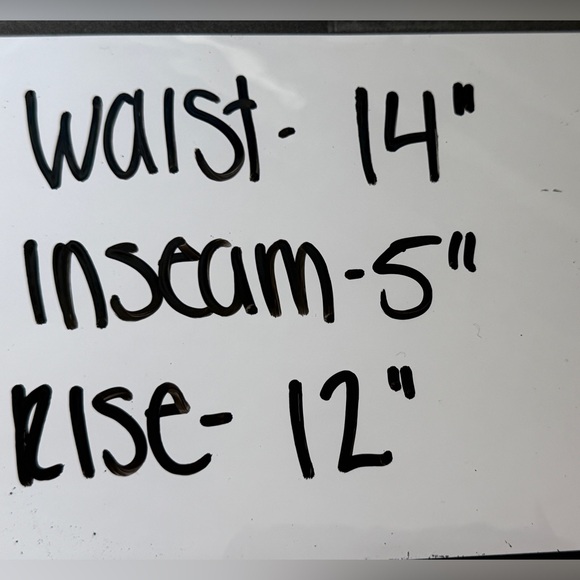 Waist- 14"
Inseam-5"
Rise- 12"